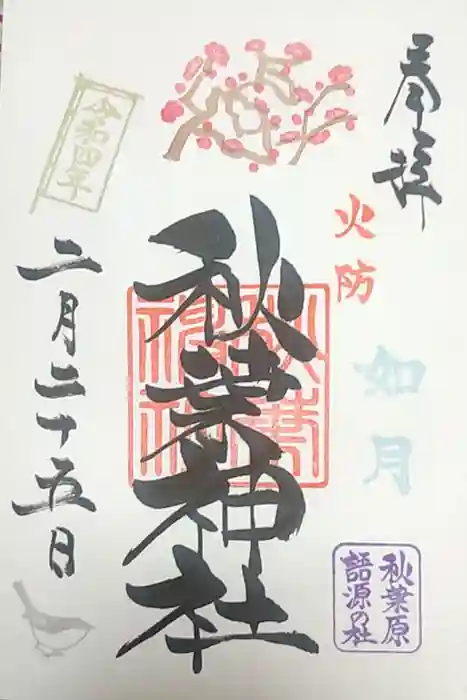 奉拝
火防
如月
秋葉原
語源の社
秋葉神社
令和四年
二月二十五日